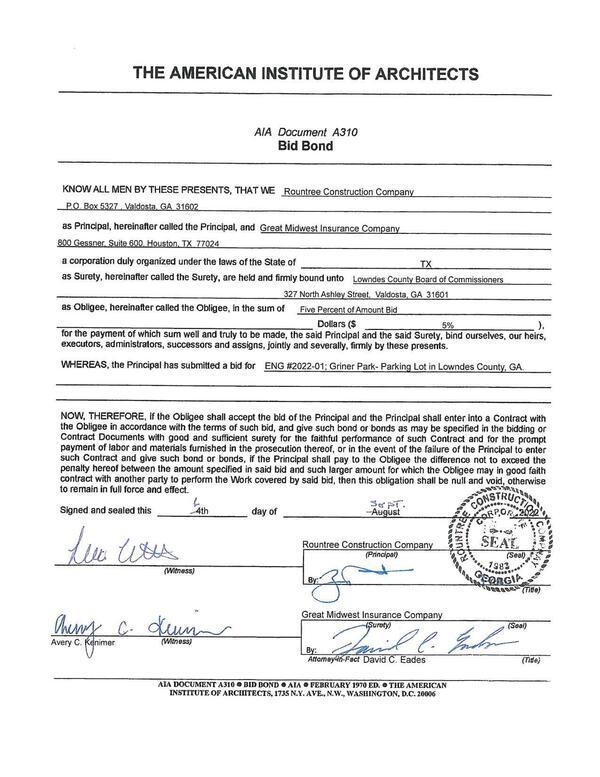 THE AMERICAN INSTITUTE OF ARCHITECTS
AIA Document A310
Bid Bond
KNOW ALL MEN BY THESE PRESENTS, THAT WE Rountree Construction Company
P.O. Box 5327 , Valdosta, GA 31602
as Principal, hereinafter called the Principal, and Great Midwest Insurance Company
800 Gessner, Suite 600, Houston, TX 77024
a corporation duly organized under the laws of the State of TX
as Surety, hereinafter called the Surety, are held and firmly bound unto Lowndes County Board of Commissioners
327 North Ashley Street, Valdosta, GA 31601
as Obligee, hereinafter called the Obligee, in the sum of Five Percent of Amount Bid
Dollars ($ 5% ),
for the payment of which sum well and truly to be made, the said Principal and the said Surety, bind ourselves, our heirs,
executors, administrators, successors and assigns, jointly and severally, firmly by these presents.
WHEREAS, the Principal has submitted a bid for ENG #2022-01; Griner Park- Parking Lot in Lowndes County, GA.
NOW, THEREFORE, if the Obligee shall accept the bid of the Principal and the Principal shall enter into a Contract with
the Obligee in accordance with the terms of such bid, and give such bond or bonds as may be specified in the bidding or
Contract Documents with good and sufficient surety for the faithful performance of such Contract and for the prompt
payment of labor and materials furnished in the prosecution thereof, or in the event of the failure of the Principal to enter
such Contract and give such bond or bonds, if the Principal shall pay to the Obligee the difference not to exceed the
penalty hereof between the amount specified in said bid and such larger amount for which the Obligee may in good faith
contract with another party to perform the Work covered by said bid, then this obligation shall be null and void, otherwise
to remain in full force and effect.
Sept.
Signed and sealed this 4th day of August , 2022
ROUNTREE CONSTRUCTION COMPANY
CORPORATE
SEAL
1983
GEORGIA
Rountree Construction Company
(Principal) (Seal)
(Witness)
By:
(Title)
Great Midwest Insurance Company
(Surety) (Seal)
Avery C. Kenimer (Witness)
By:
Attorney-in-Fact David C. Eades (Title)
AIA DOCUMENT A310 ● BID BOND ● AIA ● FEBRUARY 1970 ED. ● THE AMERICAN
INSTITUTE OF ARCHITECTS, 1735 N.Y. AVE., N.W., WASHINGTON, D.C. 20006